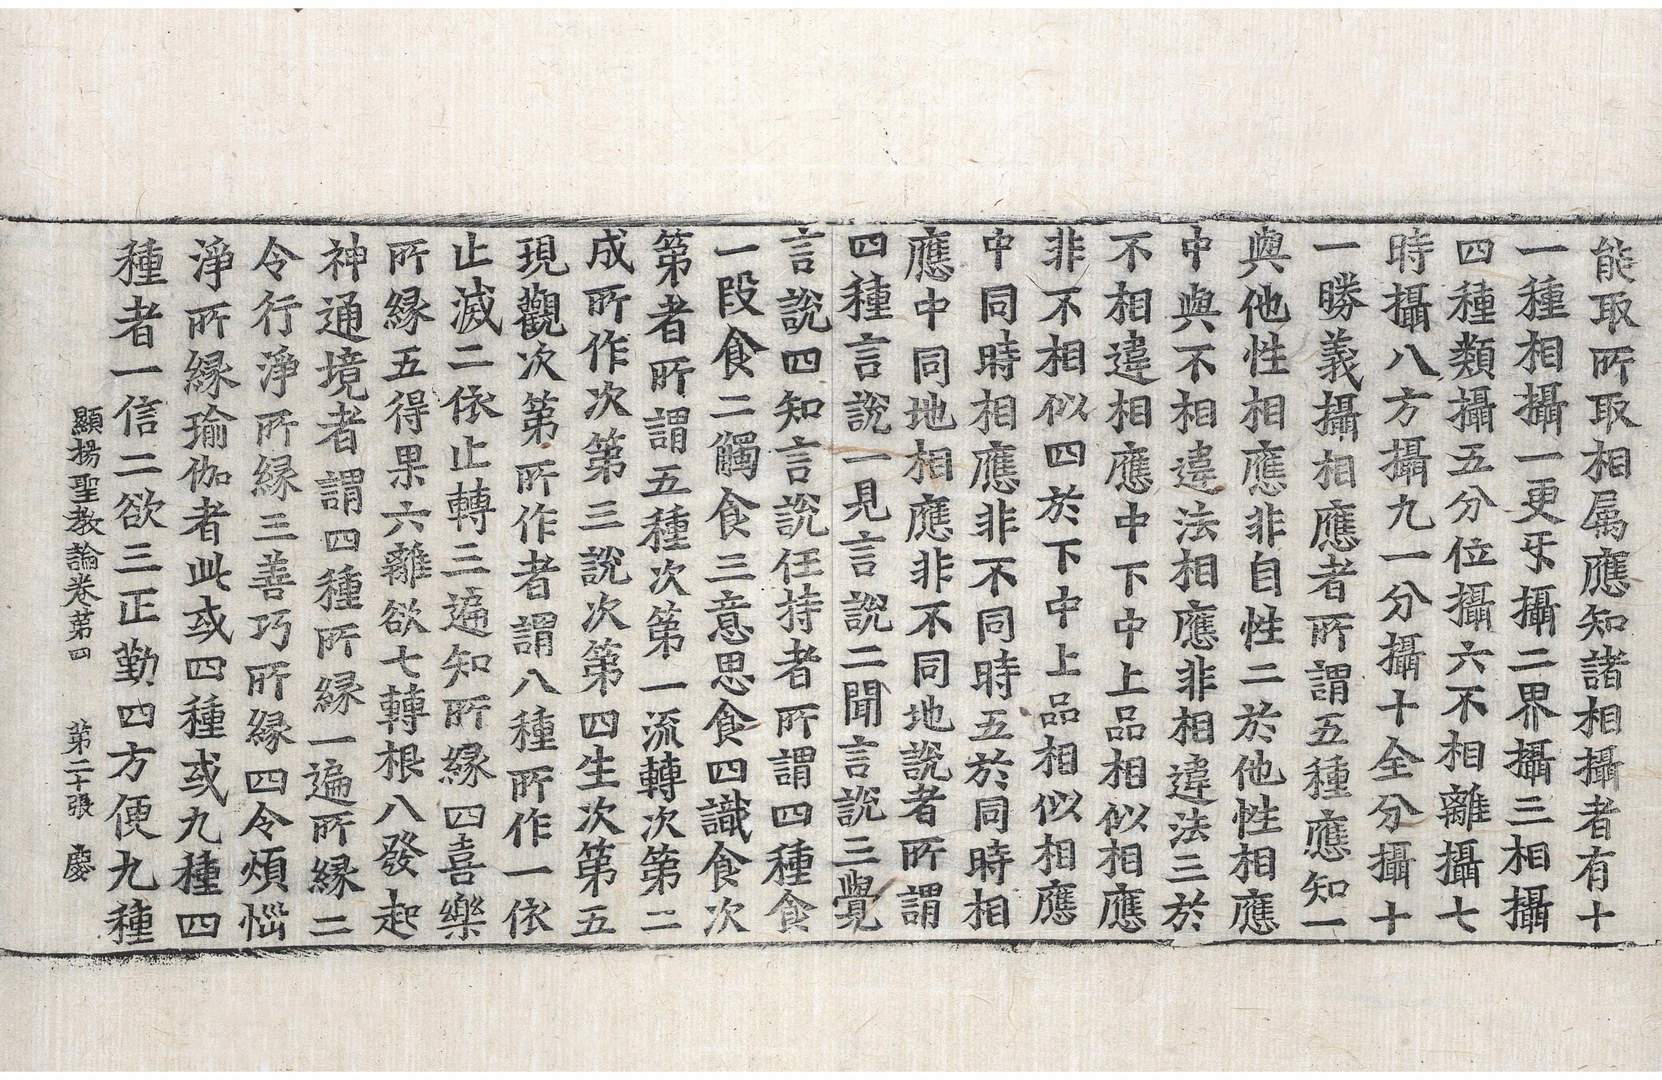 能取所取相屬應知諸相攝者有十
一種相攝一更㸦攝二界攝三相攝
四種類攝五分位攝六不相離攝七
時攝八方攝九一分攝十全分攝十
一勝義攝相應者所謂五種應知一
與他性相應非自性二於他性相應
中與不相違法相應非相違法三於
不相違相應中下中上品相似相應
非不相似四於下中上品相似相應
中同時相應非不同時五於同時相
應中同地相應非不同地說者所謂
四種言說一見言說二聞言說三覺
言說四知言說任持者所謂四種食
一段食二觸食三意思食四識食次
第者所謂五種次第一流轉次第二
成所作次第三說次第四生次第五
現觀次第所作者謂八種所作一依
止滅二依止轉三遍知所緣四喜樂
所緣五得果六離欲七轉根八發起
神通境者謂四種所緣一遍所緣二
令行淨所緣三善巧所緣四令煩惱
淨所緣瑜伽者此或四種或九種四
種者一信二欲三正勤四方便九種
顯揚聖教論卷第四 第二十張 慶